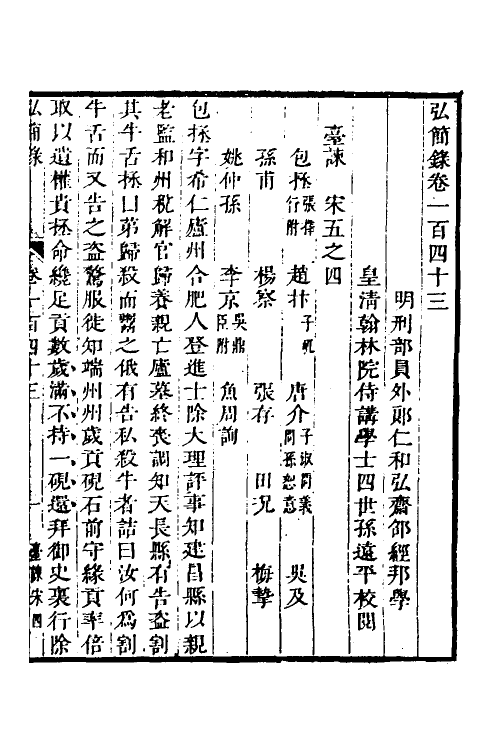 弘簡錄卷一百四十三
明刑部員外郎仁和弘齋邵經邦學
皇清翰林院侍講學士四世孫遠平校閱
臺諫 宋五之四
包拯張擇行附 趙抃子㞦 唐介子淑問義問孫恕意 吳及
孫甫 楊察 張存 田況 梅摯
姚仲孫 李京吳鼎臣附 魚周詢
包拯字希仁廬州合肥人登進士除大理評事知建昌縣以親
老監和州稅解官歸養親亡廬墓終喪調知天長縣有告盜割
其牛舌拯曰第歸殺而鬻之俄有告私殺牛者詰曰汝何爲割
牛舌而又告之盜驚服徙知端州州歲貢硯石前守緣貢率倍
取以遺權貴拯命纔足貢數歲滿不持一硯還拜御史裏行除
弘簡錄 卷一百四十三 一 臺諫宋四